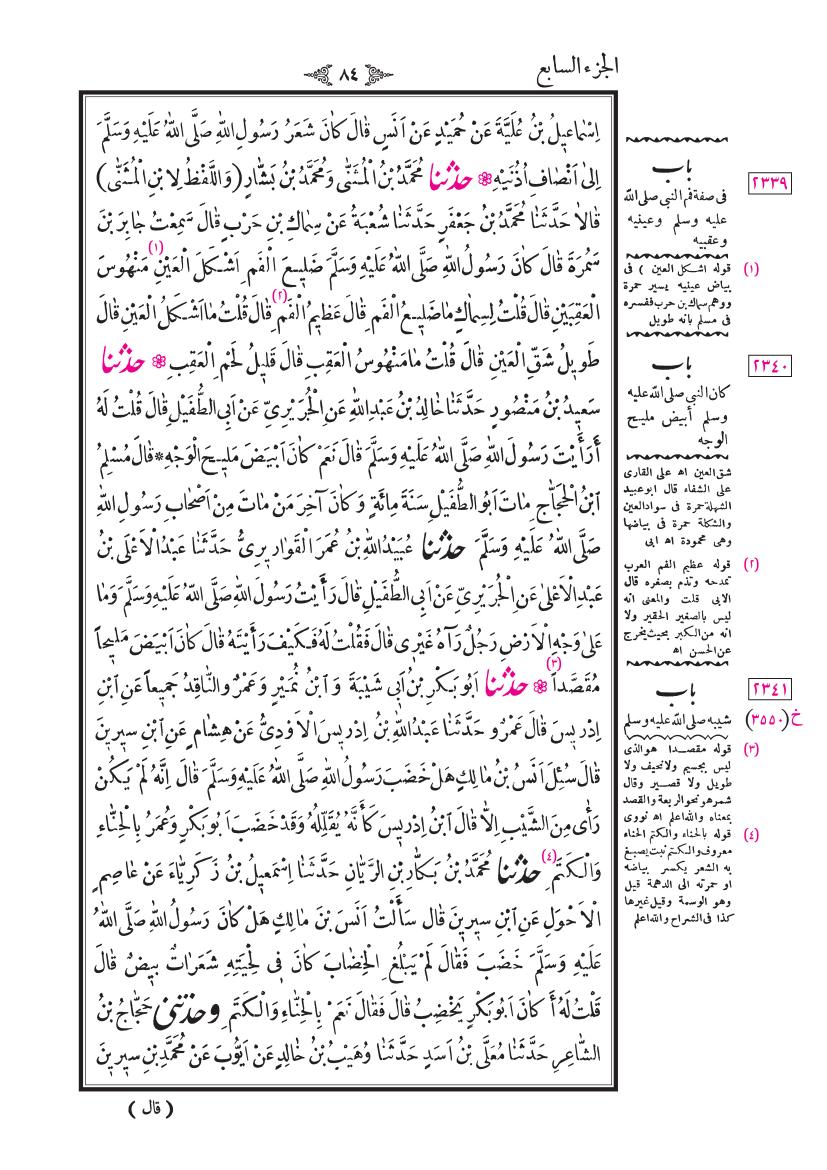 الجزء السابع
٨٤
اِسْمَاعِيلُ بْنُ عُلَيَّةَ عَنْ حُمَيْدٍ عَنْ اَنَسٍ قَالَ كَانَ شَعَرُ رَسُولِ اللهِ صَلَّى اللهُ عَلَيْهِ وَسَلَّمَ
اِلىٰ اَنْصَافِ اُذُنَيْهِ ❁ حَدَّثَنَا مُحَمَّدُ بْنُ الْمُثَنّٰى وَمُحَمَّدُ بْنُ بَشَّارٍ (وَاللَّفْظُ لِابْنِ الْمُثَنّٰى)
قَالَا حَدَّثَنَا مُحَمَّدُ بْنُ جَعْفَرٍ حَدَّثَنَا شُعْبَةُ عَنْ سِمَاكِ بْنِ حَرْبٍ قَالَ سَمِعْتُ جَابِرَ بْنَ
سَمُرَةَ قَالَ كَانَ رَسُولُ اللهِ صَلَّى اللهُ عَلَيْهِ وَسَلَّمَ ضَلِيعَ الْفَمِ (١) اَشْكَلَ الْعَيْنِ مَنْهُوسَ
الْعَقِبَيْنِ قَالَ قُلْتُ لِسِمَاكٍ مَا ضَلِيعُ الْفَمِ قَالَ عَظِيمُ الْفَمِ (٢) قَالَ قُلْتُ مَا اَشْكَلُ الْعَيْنِ قَالَ
طَوِيلُ شَقِّ الْعَيْنِ قَالَ قُلْتُ مَا مَنْهُوسُ الْعَقِبِ قَالَ قَلِيلُ لَحْمِ الْعَقِبِ ❁ حَدَّثَنَا
سَعِيدُ بْنُ مَنْصُورٍ حَدَّثَنَا خَالِدُ بْنُ عَبْدِ اللهِ عَنِ الْجُرَيْرِيِّ عَنْ اَبِى الطُّفَيْلِ قَالَ قُلْتُ لَهُ
أَرَأَيْتَ رَسُولَ اللهِ صَلَّى اللهُ عَلَيْهِ وَسَلَّمَ قَالَ نَعَمْ كَانَ اَبْيَضَ مَلِيحَ الْوَجْهِ * قَالَ مُسْلِمُ
ابْنُ الْحَجَّاجِ مَاتَ اَبُو الطُّفَيْلِ سَنَةَ مِائَةٍ وَكَانَ آخِرَ مَنْ مَاتَ مِنْ اَصْحَابِ رَسُولِ اللهِ
صَلَّى اللهُ عَلَيْهِ وَسَلَّمَ حَدَّثَنَا عُبَيْدُ اللهِ بْنُ عُمَرَ الْقَوَارِيرِيُّ حَدَّثَنَا عَبْدُ الْاَعْلَى بْنُ
عَبْدِ الْاَعْلىٰ عَنِ الْجُرَيْرِيِّ عَنْ اَبِى الطُّفَيْلِ قَالَ رَأَيْتُ رَسُولَ اللهِ صَلَّى اللهُ عَلَيْهِ وَسَلَّمَ وَمَا
عَلىٰ وَجْهِ الْاَرْضِ رَجُلٌ رَآهُ غَيْرِى قَالَ فَقُلْتُ لَهُ فَكَيْفَ رَأَيْتَهُ قَالَ كَانَ اَبْيَضَ مَلِيحاً
مُقَصَّداً (٣) ❁ حَدَّثَنَا اَبُو بَكْرِ بْنُ اَبِى شَيْبَةَ وَابْنُ نُمَيْرٍ وَعَمْرٌو النَّاقِدُ جَمِيعاً عَنِ ابْنِ
اِدْرِيسَ قَالَ عَمْرٌو حَدَّثَنَا عَبْدُ اللهِ بْنُ اِدْرِيسَ الْاَوْدِيُّ عَنْ هِشَامٍ عَنِ ابْنِ سِيرِينَ
قَالَ سُئِلَ اَنَسُ بْنُ مَالِكٍ هَلْ خَضَبَ رَسُولُ اللهِ صَلَّى اللهُ عَلَيْهِ وَسَلَّمَ قَالَ اِنَّهُ لَمْ يَكُنْ
رَأَى مِنَ الشَّيْبِ اِلَّا قَالَ ابْنُ اِدْرِيسَ كَأَنَّهُ يُقَلِّلُهُ وَقَدْ خَضَبَ اَبُو بَكْرٍ وَعُمَرُ بِالْحِنَّاءِ
وَالْكَتَمِ (٤) حَدَّثَنَا مُحَمَّدُ بْنُ بَكَّارِ بْنِ الرَّيَّانِ حَدَّثَنَا اِسْمٰعِيلُ بْنُ زَكَرِيَّاءَ عَنْ عَاصِمٍ
الْاَحْوَلِ عَنِ ابْنِ سِيرِينَ قَالَ سَأَلْتُ اَنَسَ بْنَ مَالِكٍ هَلْ كَانَ رَسُولُ اللهِ صَلَّى اللهُ
عَلَيْهِ وَسَلَّمَ خَضَبَ فَقَالَ لَمْ يَبْلُغِ الْخِضَابَ كَانَ فِى لِحْيَتِهِ شَعَرَاتٌ بِيضٌ قَالَ
قُلْتُ لَهُ أَكَانَ اَبُو بَكْرٍ يَخْضِبُ قَالَ فَقَالَ نَعَمْ بِالْحِنَّاءِ وَالْكَتَمِ وحَدَّثَنِى حَجَّاجُ بْنُ
الشَّاعِرِ حَدَّثَنَا مُعَلَّى بْنُ اَسَدٍ حَدَّثَنَا وُهَيْبُ بْنُ خَالِدٍ عَنْ اَيُّوبَ عَنْ مُحَمَّدِ بْنِ سِيرِينَ
( قال )
٢٣٣٩
باب
فى صفة فم النبى صلى الله
عليه وسلم وعينيه
وعقبيه
(١) قوله اشكل العين ) فى
بياض عينيه يسير حمرة
ووهم سماك بن حرب ففسره
فى مسلم بانه طويل
٢٣٤٠
باب
كان النبى صلى الله عليه
وسلم أبيض مليح
الوجه
شق العين اه على القارى
على الشفاء قال ابو عبيد
الشهلة حمرة فى سواد العين
والشكلة حمرة فى بياضها
وهى محمودة اه ابى
(٢) قوله عظيم الفم العرب
تمدحه وتذم بصغره قال
الابى قلت والمعنى انه
ليس بالصغير الحقير ولا
انه من الكبر بحيث يخرج
عن الحسن اه
٢٣٤١
باب
شيبه صلى الله عليه وسلم
خ (٣٥٥٠)
(٣) قوله مقصدا هو الذى
ليس بجسيم ولا نحيف ولا
طويل ولا قصير وقال
شمر هو نحو الربعة والقصد
بمعناه والله اعلم اه نووى
(٤) قوله بالحناء والكتم الحناء
معروف والكتم نبت يصبغ
به الشعر يكسر بياضه
او حمرته الى الدهمة قيل
وهو الوسمة وقيل غيرها
كذا فى الشراح والله اعلم